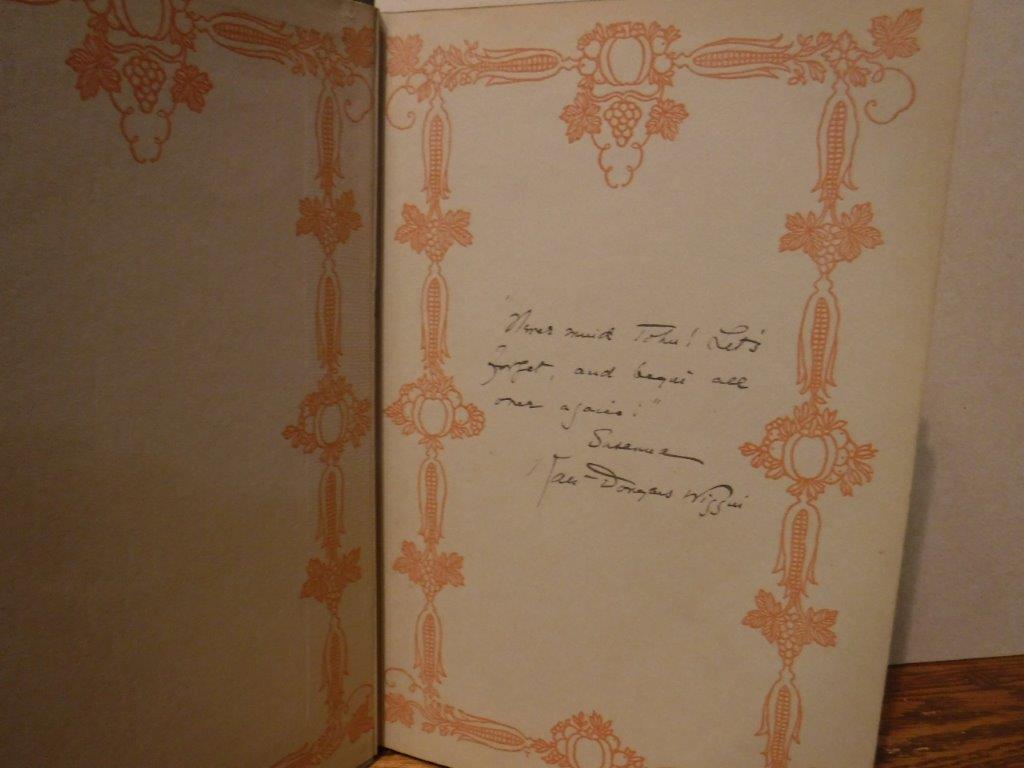 "Never mind John! Let's
forget, and begin all
over again!"
Susanna
Kate Douglas Wiggin